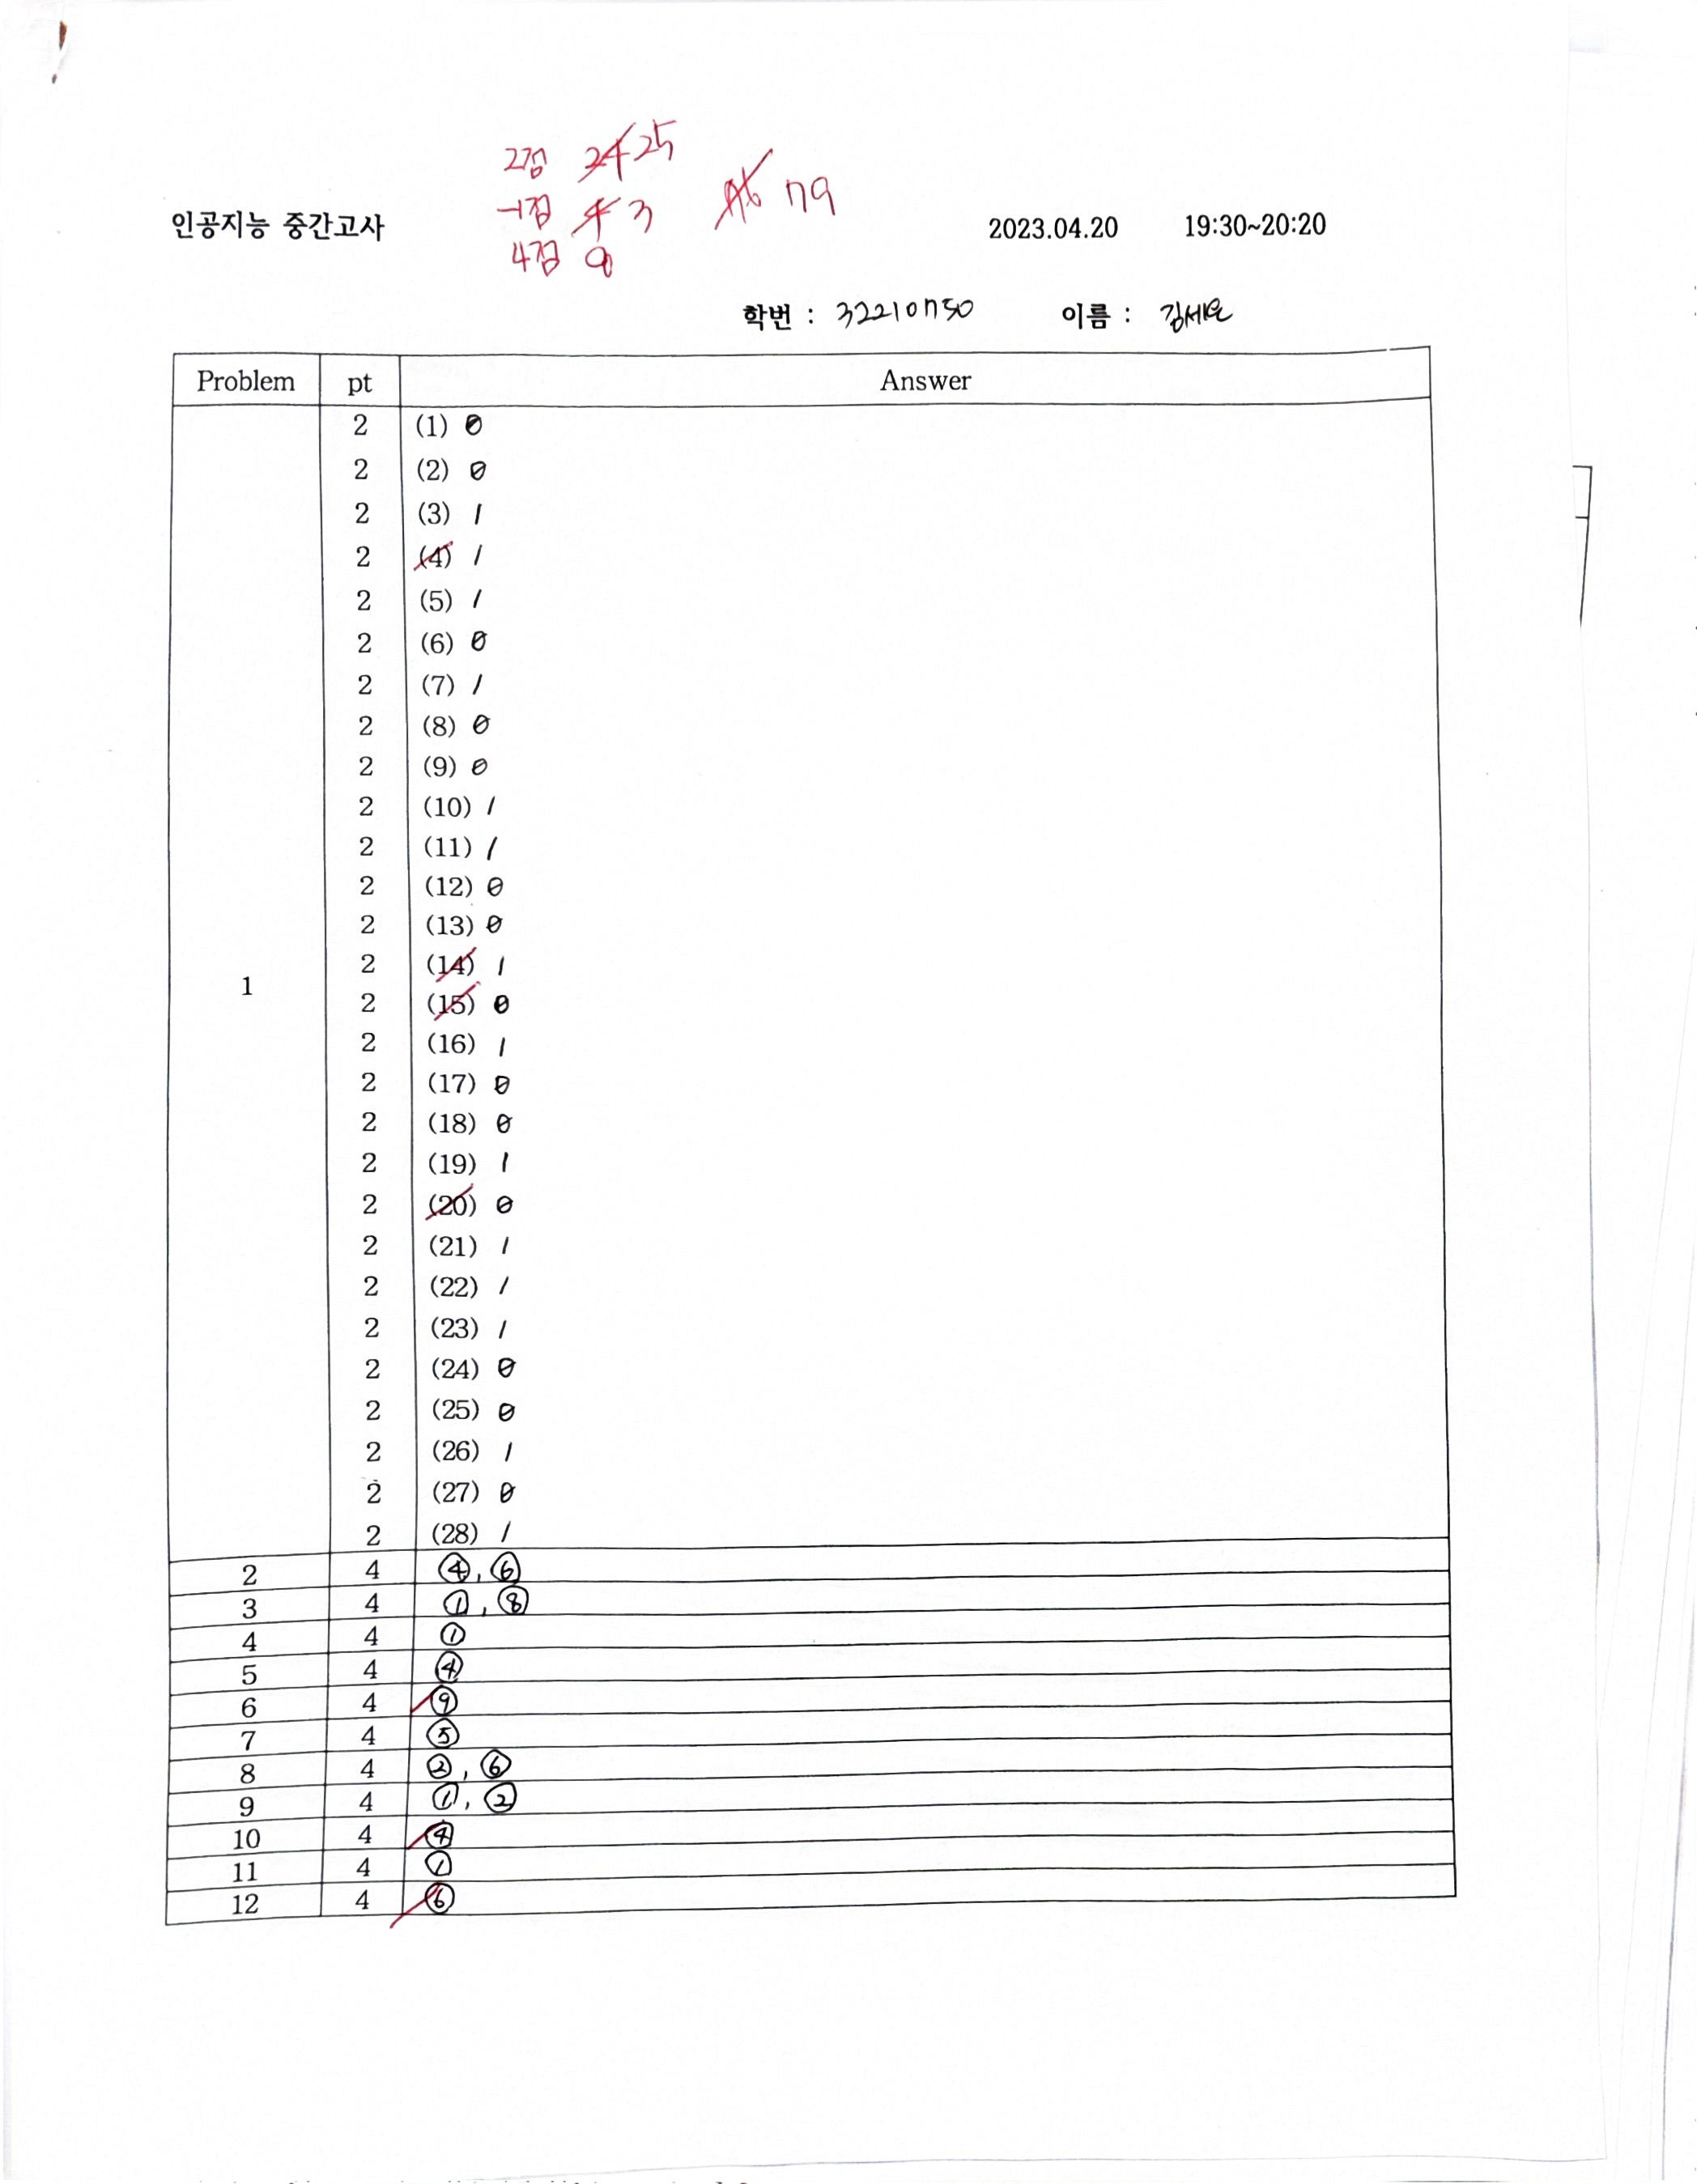 2점 24 25
-1점 4 3 76 79
4점 9
인공지능 중간고사 2023.04.20 19:30~20:20
학번 : 32210750 이름 : 김세은
Problem pt Answer
2 (1) 0
2 (2) 0
2 (3) 1
2 (4) 1
2 (5) 1
2 (6) 0
2 (7) 1
2 (8) 0
2 (9) 0
2 (10) 1
2 (11) 1
2 (12) 0
2 (13) 0
2 (14) 1
1
2 (15) 0
2 (16) 1
2 (17) 0
2 (18) 0
2 (19) 1
2 (20) 0
2 (21) 1
2 (22) 1
2 (23) 1
2 (24) 0
2 (25) 0
2 (26) 1
2 (27) 0
2 (28) 1
2 4 ④, ⑥
3 4 ①, ⑧
4 4 ①
5 4 ④
6 4 ⑨
7 4 ⑤
8 4 ②, ⑥
9 4 ①, ②
10 4 ④
11 4 ①
12 4 ⑥